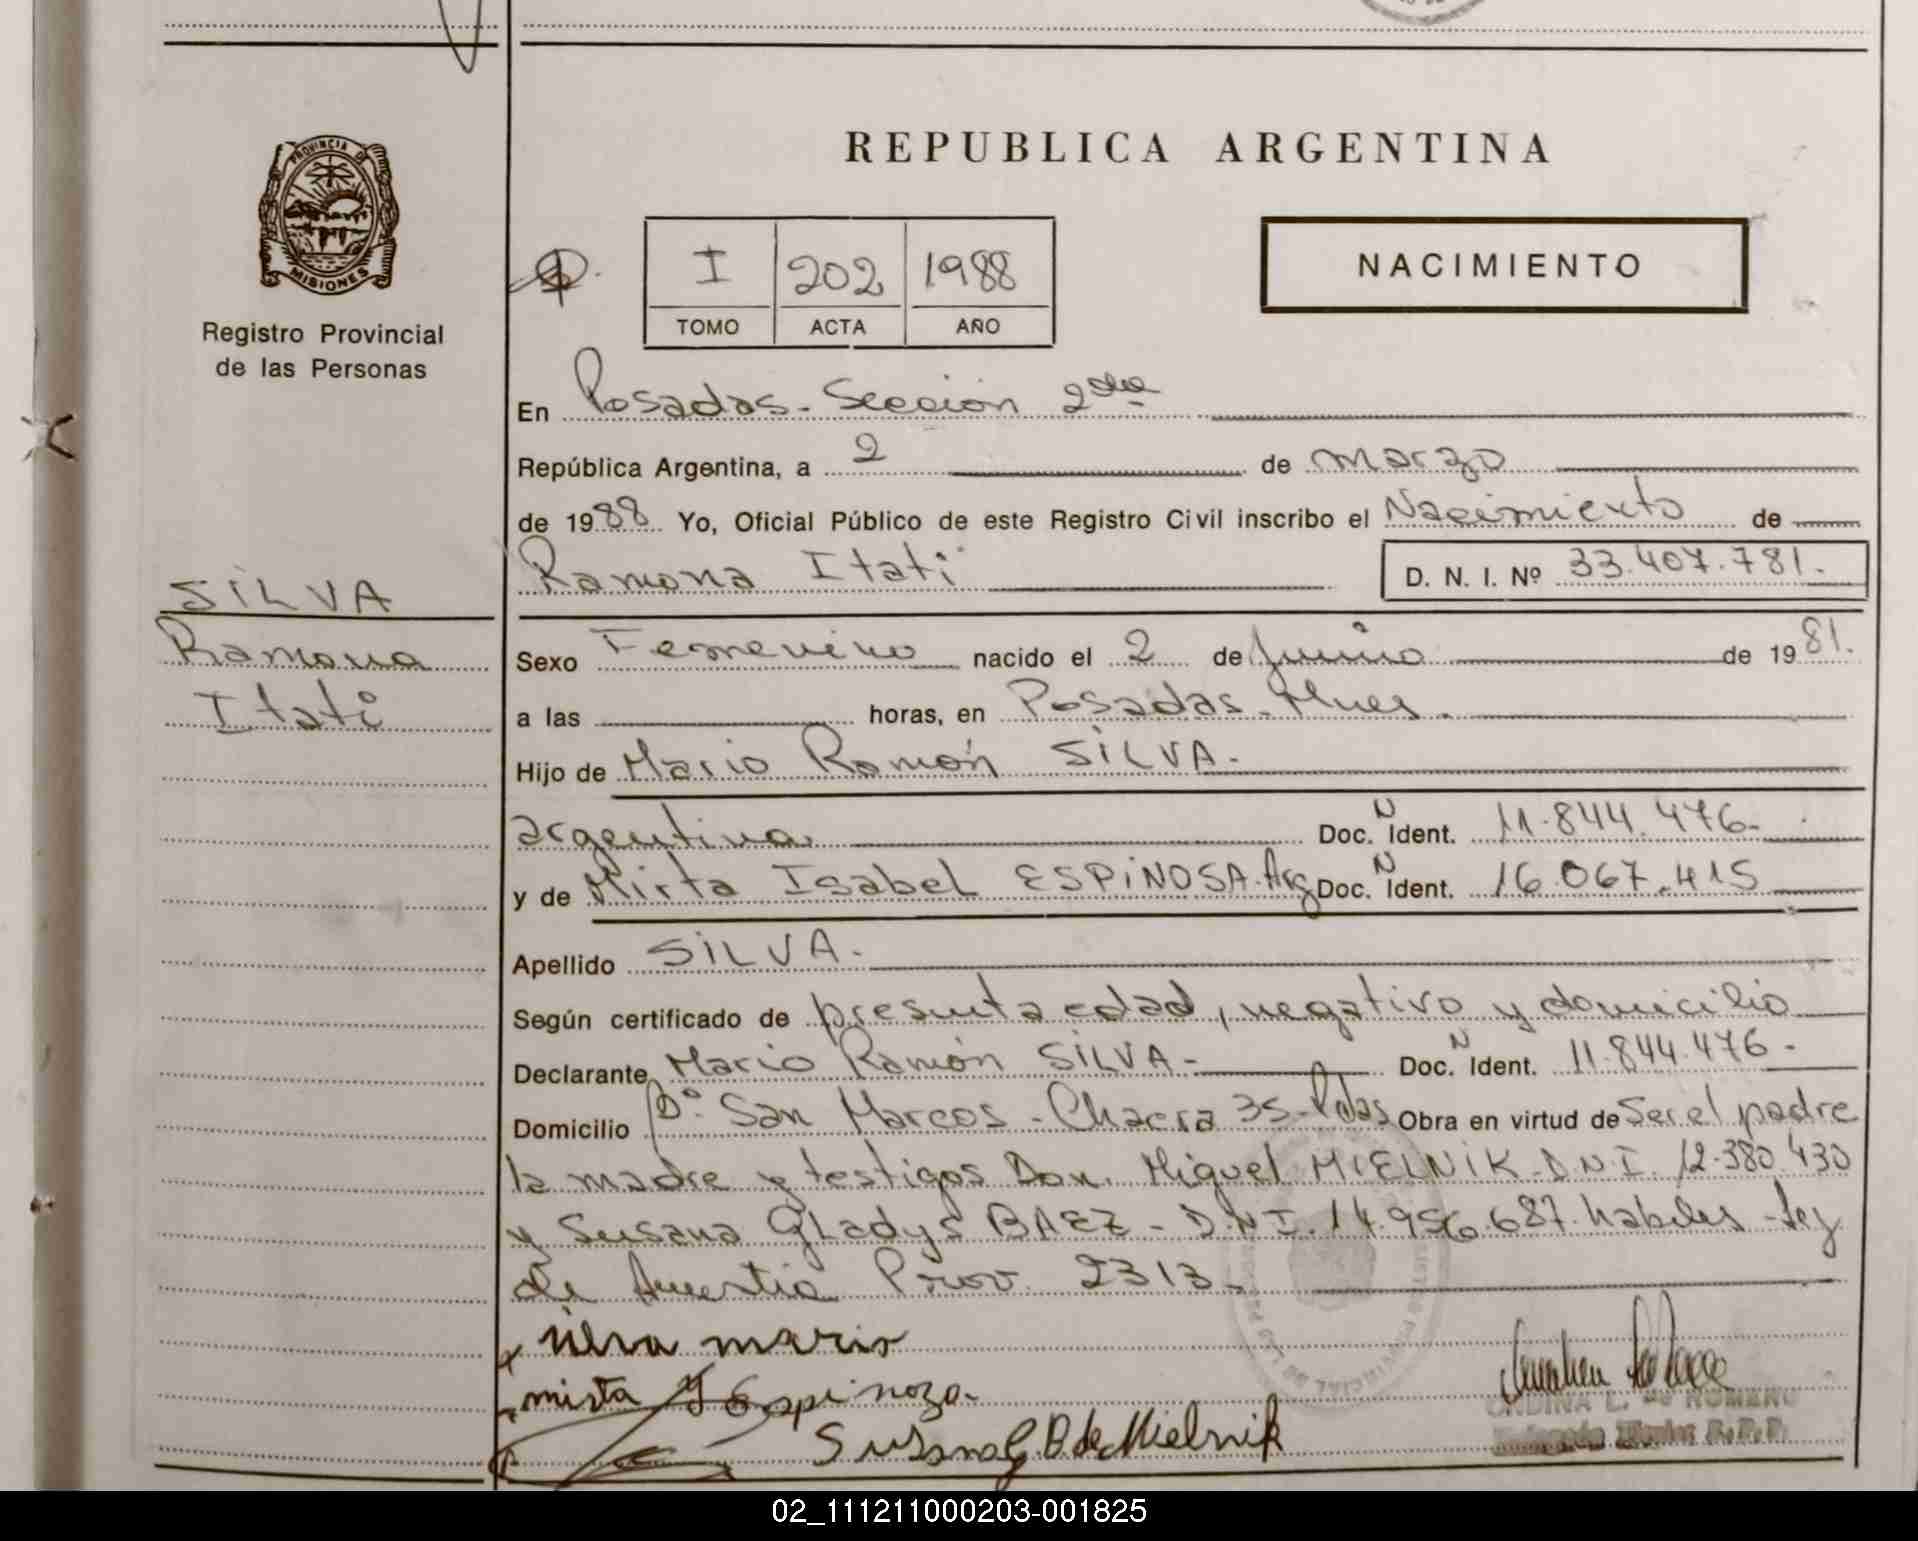 REPUBLICA ARGENTINA
PROVINCIA DE
MISIONES
Registro Provincial
de las Personas
I 202 1988
TOMO ACTA AÑO
NACIMIENTO
En Posadas - Sección 2da
República Argentina, a 2 de marzo
de 1988 Yo, Oficial Público de este Registro Civil inscribo el Nacimiento de
Ramona Itati D. N. I. Nº 33.407.781.
SILVA
Ramona
Itati
Sexo Femenino nacido el 2 de Junio de 1981.
a las horas, en Posadas - Mnes.
Hijo de Mario Ramón SILVA.
argentina Doc. N Ident. 11.844.476.
y de Mirta Isabel ESPINOSA. Arg Doc. N Ident. 16.067.415
Apellido SILVA.
Según certificado de presunta edad, negativo y domicilio
Declarante Mario Ramón SILVA - Doc. N Ident. 11.844.476.
Domicilio Bº. San Marcos - Chacra 35 - Pdas Obra en virtud de Ser el padre
la madre y testigos Don. Miguel MIELNIK - D.N.I. 12.380.430
y Susana GLadys BAEZ - D.N.I. 14.956.687. habiles - Ley
de Amnistia Prov. 2313.
x silva mario
mirta I Espinoza.
Susana G B de Mielnik
ONDINA L. DE ROMERO
02_111211000203-001825